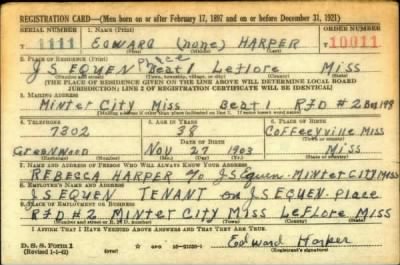 REGISTRATION CARD—(Men born on or after February 17, 1897 and on or before December 31, 1921)
SERIAL NUMBER 1. NAME (Print) ORDER NUMBER
T 1111 EDWARD (none) HARPER T 10011
2. PLACE OF RESIDENCE (Print)
place
J S EQUEN Beat 1 Leflore Miss
(Number and street) (Town, township, village, or city) (County) (State)
[THE PLACE OF RESIDENCE GIVEN ON THE LINE ABOVE WILL DETERMINE LOCAL BOARD
JURISDICTION; LINE 2 OF REGISTRATION CERTIFICATE WILL BE IDENTICAL]
3. MAILING ADDRESS
Minter City Miss Beat 1 RFD #2 Box 198
4. TELEPHONE 5. AGE IN YEARS 6. PLACE OF BIRTH
7302 38 Coffeeyville Miss
DATE OF BIRTH
Greenwood Nov 27 1903 Miss
(Exchange) (Number) (Mo.) (Day) (Yr.) (State or country)
7. NAME AND ADDRESS OF PERSON WHO WILL ALWAYS KNOW YOUR ADDRESS
REBECCA HARPER % JS Equen - MINTER CITY MISS
8. EMPLOYER'S NAME AND ADDRESS
JS EQUEN TENANT on JS EQUEN - Place
9. PLACE OF EMPLOYMENT OR BUSINESS
RFD #2 MINTER CITY MISS LEFLORE MISS
(Number and street or R. F. D. number) (Town) (County) (State)
I AFFIRM THAT I HAVE VERIFIED ABOVE ANSWERS AND THAT THEY ARE TRUE.
D. S. S. Form 1
(Revised 1-1-42) Edward Harper
(Registrant's signature)